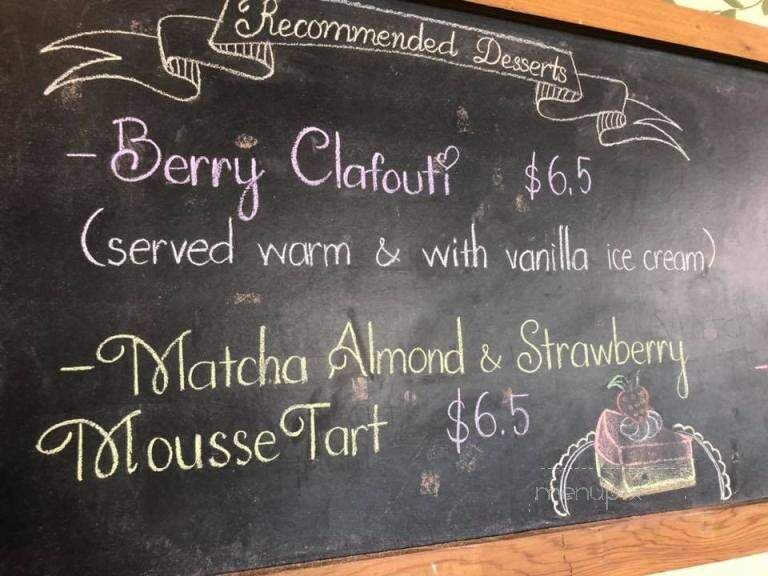 Recommended Desserts
- Berry Clafouti $6.5
(served warm & with vanilla ice cream)
- Matcha Almond & Strawberry
Mousse Tart $6.5
menupix